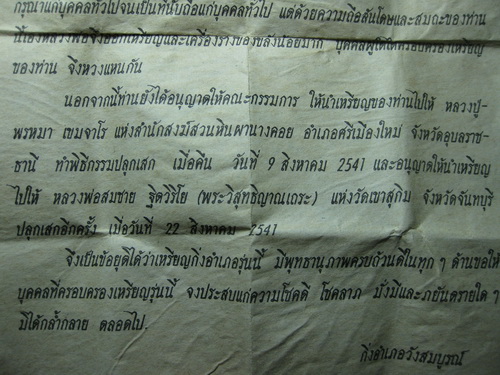 กรุณาแก่บุคคลทั่วไปจนเป็นที่นับถือแก่บุคคลทั่วไป แต่ด้วยความถือสันโดษและสมถะของท่าน
นี้เองหลวงพ่อจึงออกเหรียญและเครื่องรางของขลังน้อยมาก บุคคลผู้ใดได้ครอบครองเหรียญ
ของท่าน จึงหวงแหนกัน
นอกจากนี้ท่านยังได้อนุญาตให้คณะกรรมการ ให้นำเหรียญของท่านไปให้ หลวงปู่-
พรหมา เขมจาโร แห่งสำนักสงฆ์สวนหินผานางคอย อำเภอศรีเมืองใหม่ จังหวัดอุบลราช-
ธานี ทำพิธีกรรมปลุกเสก เมื่อคืน วันที่ 9 สิงหาคม 2541 และอนุญาตให้นำเหรียญ
ไปให้ หลวงพ่อสมชาย ฐิตวิริโย (พระวิสุทธิญาณเถระ) แห่งวัดเขาสุกิม จังหวัดจันทบุรี
ปลุกเสกอีกครั้ง เมื่อวันที่ 22 สิงหาคม 2541
จึงเป็นข้อยุติได้ว่าเหรียญกิ่งอำเภอรุ่นนี้ มีพุทธานุภาพครบถ้วนดีในทุก ๆ ด้านขอให้
บุคคลที่ครอบครองเหรียญรุ่นนี้ จงประสบแก่ความโชคดี โชคลาภ มั่งมีและภยันตรายใด ๆ
มิได้กล้ำกลาย ตลอดไป.
กิ่งอำเภอวังสมบูรณ์